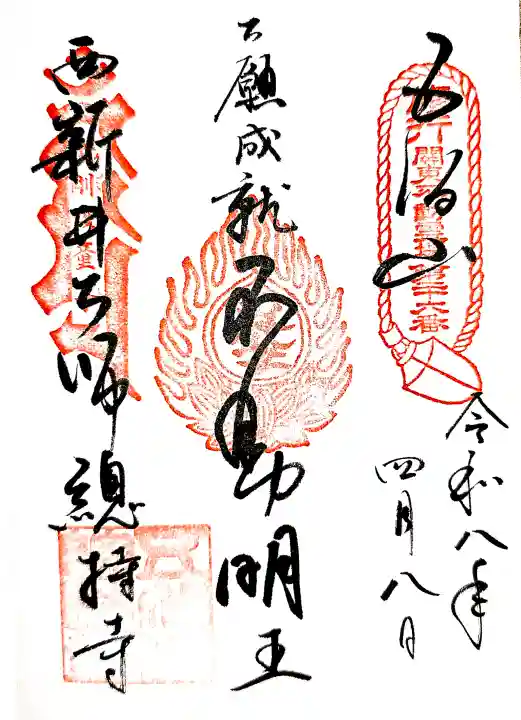 五智山
令和八年
四月八日
大願成就
不動明王
西新井大師
總持寺
関東不動霊場第二十六番